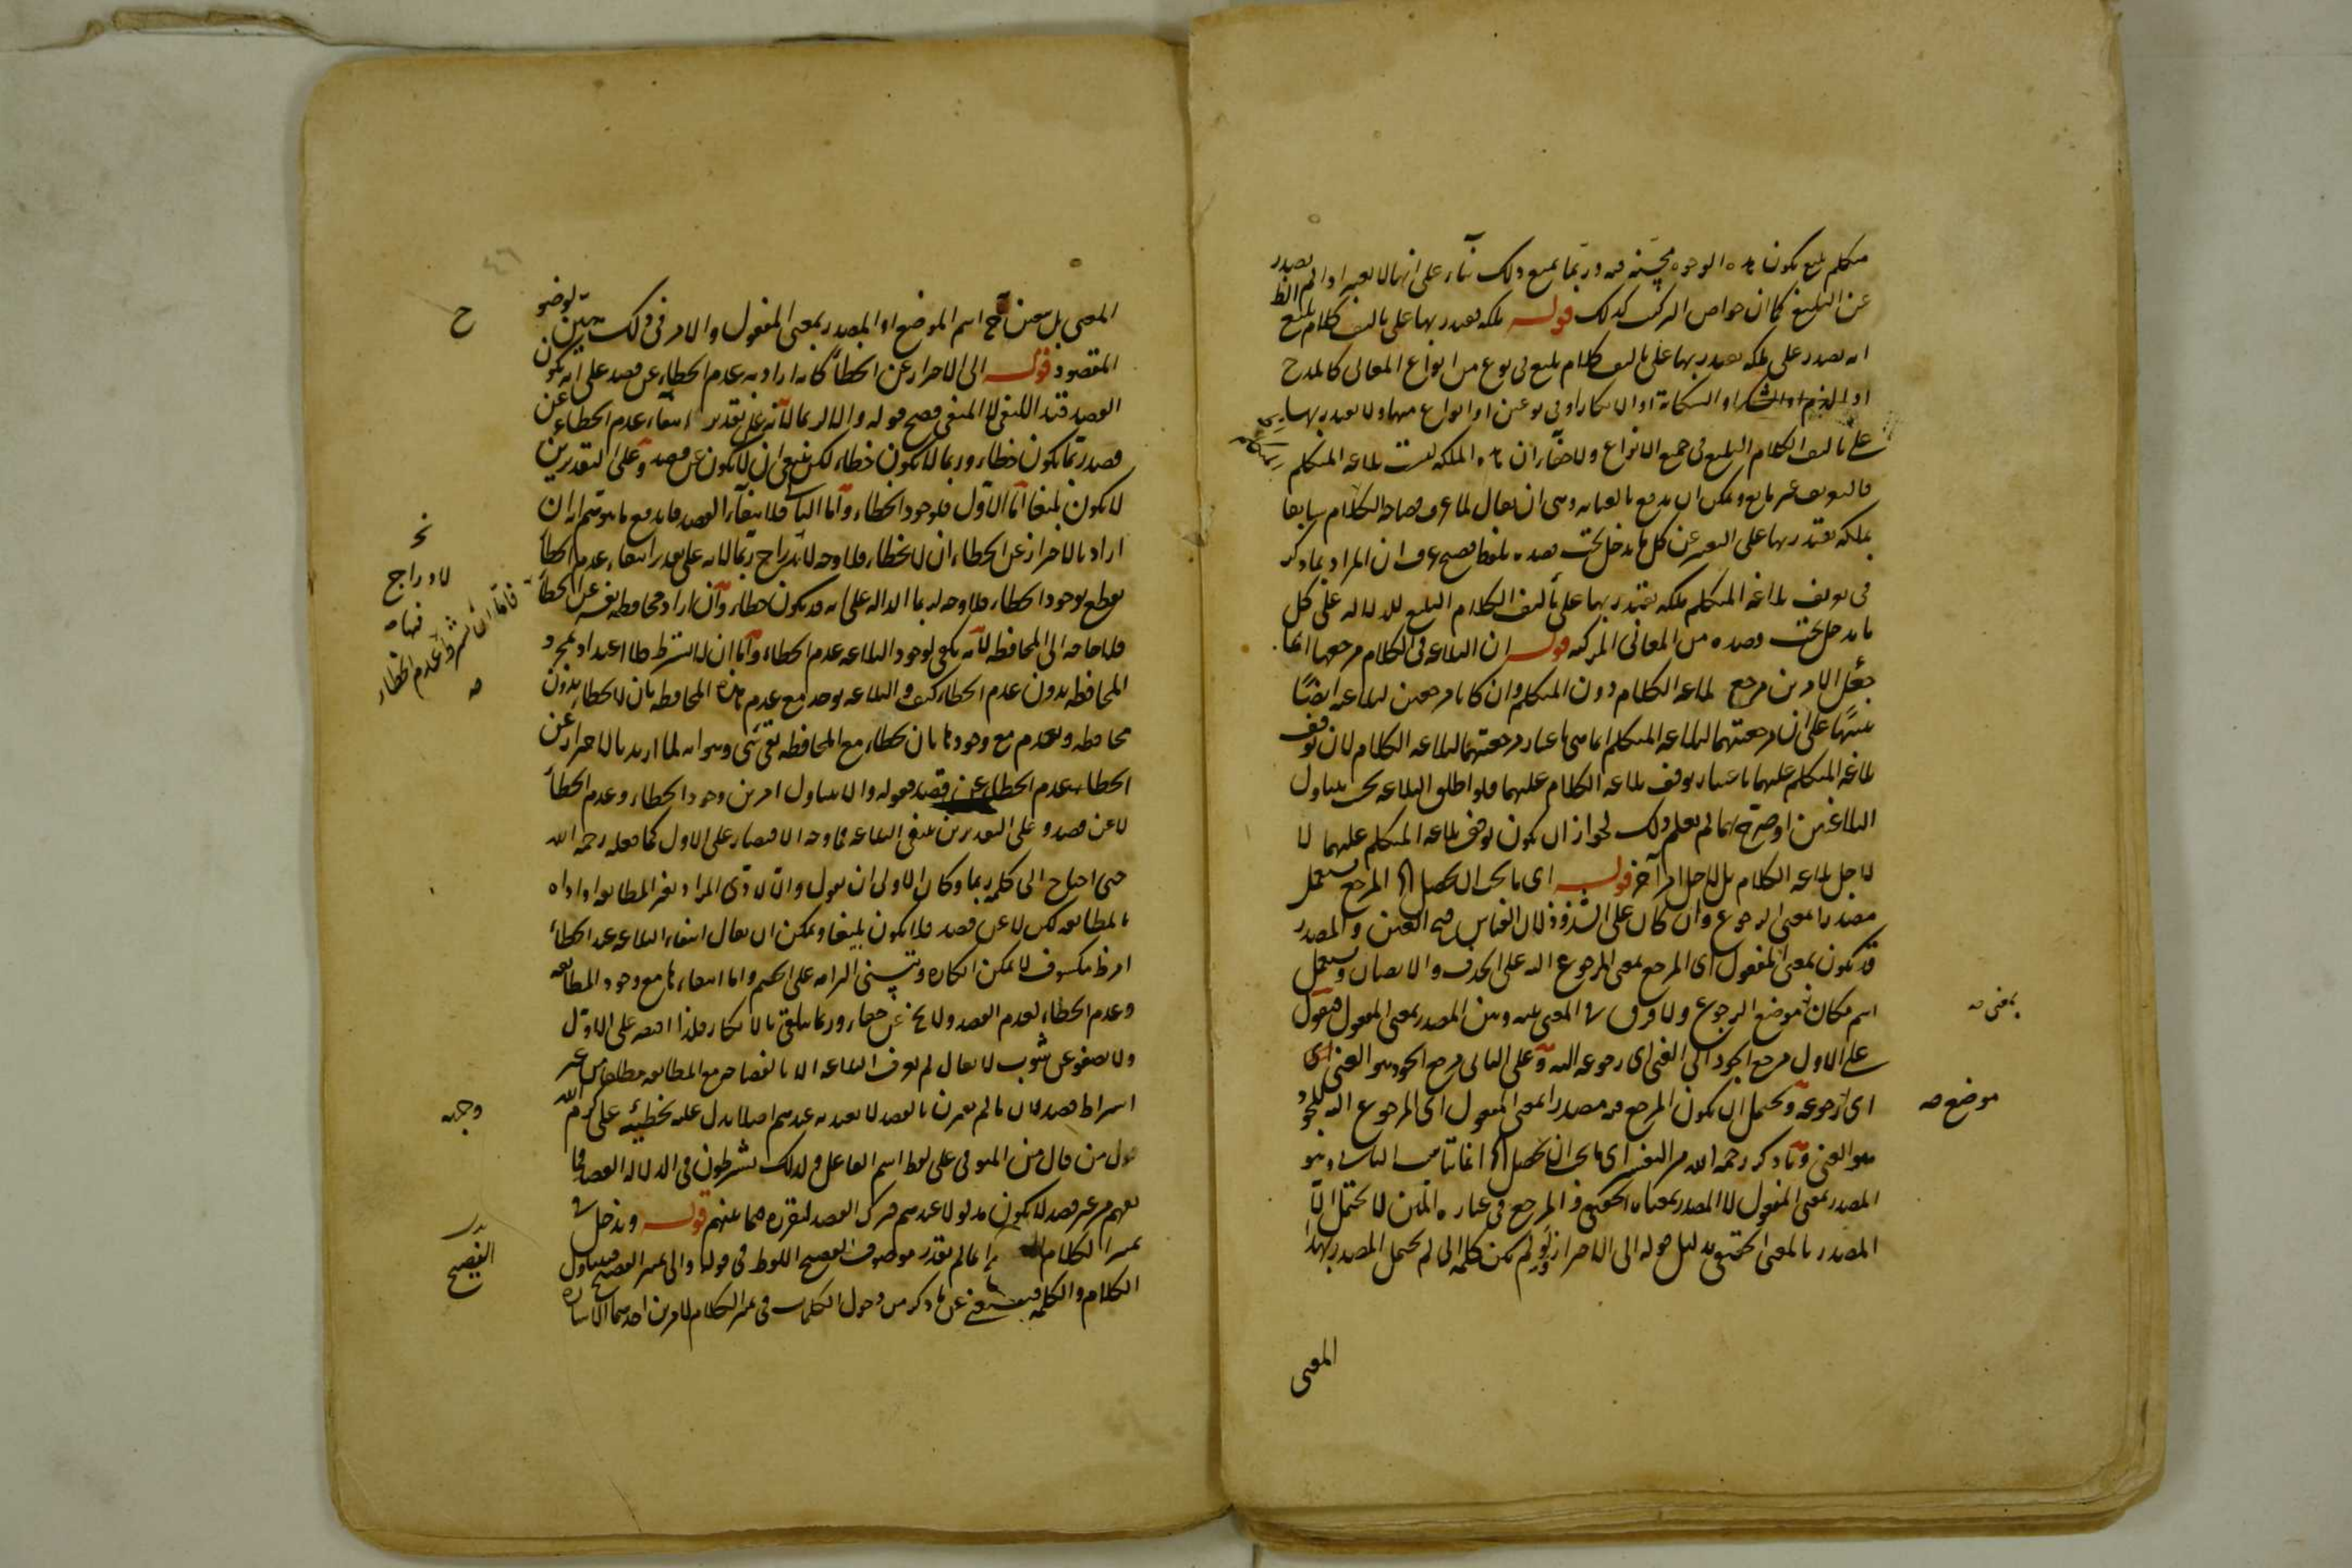 متكلم بليغ يكون هذه الوجوه محسنة فيه وربما يمنع ذلك بناء على انها لا تعتبر اذا لم يصدر
عن البليغ كما ان خواص التركيب كذلك قوله ملكة يقتدر بها على تاليف كلام بليغ
انه يصدق على ملكة يقتدر بها على تاليف كلام بليغ في نوع من انواع المعاني كالمدح
او الذم او الشكر او الشكاية او الانكار او في نوعين او انواع منها ولا يقتدر بها
على تاليف الكلام البليغ في جميع الانواع ولا خفاء ان هذه الملكة ليست بلاغة المتكلم
فالتعريف غير مانع ويمكن ان يدفع بالعناية وهي ان يقال لما عرف فصاحة الكلام سابقا
بملكة يقتدر بها على التعبير عن كل ما يدخل تحت قصده بلفظ فصيح عرف ان المراد بما ذكر
في تعريف بلاغة المتكلم ملكة يقتدر بها على تأليف الكلام البليغ للدلالة على كل
ما يدخل تحت قصده من المعاني المركبة قوله ان البلاغة في الكلام مرجعها انما
جعل الامرين مرجع بلاغة الكلام دون المتكلم وان كانا مرجعين لبلاغته ايضًا
تنبيهًا على ان مرجعيتهما لبلاغة المتكلم انما هي باعتبار مرجعيتهما لبلاغة الكلام لان توقف
بلاغة المتكلم عليهما باعتبار توقف بلاغة الكلام عليهما فلو اطلق البلاغة بحيث يتناول
البلاغتين او صرح بهما لم يعلم ذلك لجواز ان يكون توقف بلاغة المتكلم عليهما لا
لاجل بلاغة الكلام بل لاجل امر آخر قوله اى ما يجب ان يحصل المرجع يستعمل
مصدرا بمعنى الرجوع وان كان على الشذوذ لان القياس فتح العين والمصدر
قد يكون بمعنى المفعول اى المرجع بمعنى المرجوع اليه على الحذف والايصال ويستعمل
اسم مكان موضع الرجوع ولا فرق في المعنى بينه وبين المصدر بمعنى المفعول فتقول
بمعنى صح
على الاول مرجع الجود الى الغنى اى رجوعه اليه وعلى الثاني مرجع الجود هو الغنى اى
اى رجوعه ويحتمل ان يكون المرجع فيه مصدرا بمعنى المفعول اى المرجوع اليه للجود
موضع صح
هو الغنى وما ذكره رحمه الله من التفسير اى ما يجب ان يحصل انما يناسب الثاني وهو
المصدر بمعنى المفعول لا المصدر بمعناه الحقيقي والمرجع في عبارة المتن لا يحتمل الا
المصدر بالمعنى الحقيقي بدليل قوله الى الاحتراز ولو لم يكن كلمة الى لم يحتمل المصدر بهذا
المعنى
المعنى بل تعين ح اسم الموضع او المصدر بمعنى المفعول والامر في ذلك هين
ح
المقصود قوله الى الاحتراز عن الخطأ كانه اراد به عدم الخطاء عن قصد على انه يكون
القصد قيد النفى لا المنفى فصح قوله والا لربما لانه على تقدير انتفاء عدم الخطاء عن
قصد ربما يكون خطاء وربما لا يكون خطاء لكن ينبغي ان لا يكون عن قصد وعلى التقديرين
لا يكون بليغا اما الاول فلوجود الخطاء واما الثاني فلانتفاء القصد فاندفع ما يتوهم انه ان
اراد بالاحتراز عن الخطاء ان لا يخطاء فلا وجه لادراج ربما لانه على تقدير انتفاء عدم الخطأ
لادراج
يقطع بوجود الخطاء فلا وجه لربما الدالة على انه قد يكون خطاء وان اراد محافظة نفسه عن الخطأ
فلا حاجة الى المحافظة لانه يكفي لوجود البلاغة عدم الخطاء واما ان لا يشترط فلا اعتداد بمجرد
فاما ان يشترط عدم الخطاء
صح
المحافظة بدون عدم الخطاء كيف والبلاغة يوجد مع عدم هذه المحافظة بان لا يخطاء بدون
محافظة وتعدم مع وجودها بان يخطاء مع المحافظة بقي شى وهو انه لما اريد بالاحتراز عن
الخطاء عدم الخطاء عن قصد فقوله والا يتناول امرين وجود الخطاء وعدم الخطأ
لا عن قصد وعلى التقديرين ينتفي البلاغة فما وجه الاقتصار على الاول كما فعله رحمه الله
حتى احتاج الى كلمة ربما وكان الاولى ان يقول والا لادى المراد بغير المطابقة او اداه
بالمطابقة لكن لا عن قصد فلا يكون بليغا ويمكن ان يقال انتفاء البلاغة عند الخطأ
امر مكشوف لا يمكن انكاره ويتسنى الزامه على الخصم واما انتفاءها مع وجود المطابقة
وعدم الخطاء لعدم القصد ولا يخ عن خفاء وربما يتلقى بالانكار فلذا اقتصر على الاول
ولا يصفو عن شوب لا يقال لم يعرف البلاغة الا بالفصاحة مع المطابقة مطلقا من غير
اشتراط قصد لان ما لم يقترن بالقصد لا يعتد به عندهم اصلا يدل عليه تخطئة على كرم الله
وجهه
قول من قال من المتوفى على لفظ اسم الفاعل ولذلك يشترطون في الدلالة القصد فما
يفهم من غير قصد لا يكون مدلولا عندهم فترك القصد لتقرره فيما بينهم قوله ويدخل في
تمييز الكلام انما لم يقدر موصوف الفصيح اللفظ في قوله والى تمييز الفصيح فيتناول
الفصيح
الكلام والكلمة فيستغنى عن ما ذكر من دخول الكلمات في تمييز الكلام لامرين احدهما الاشارة